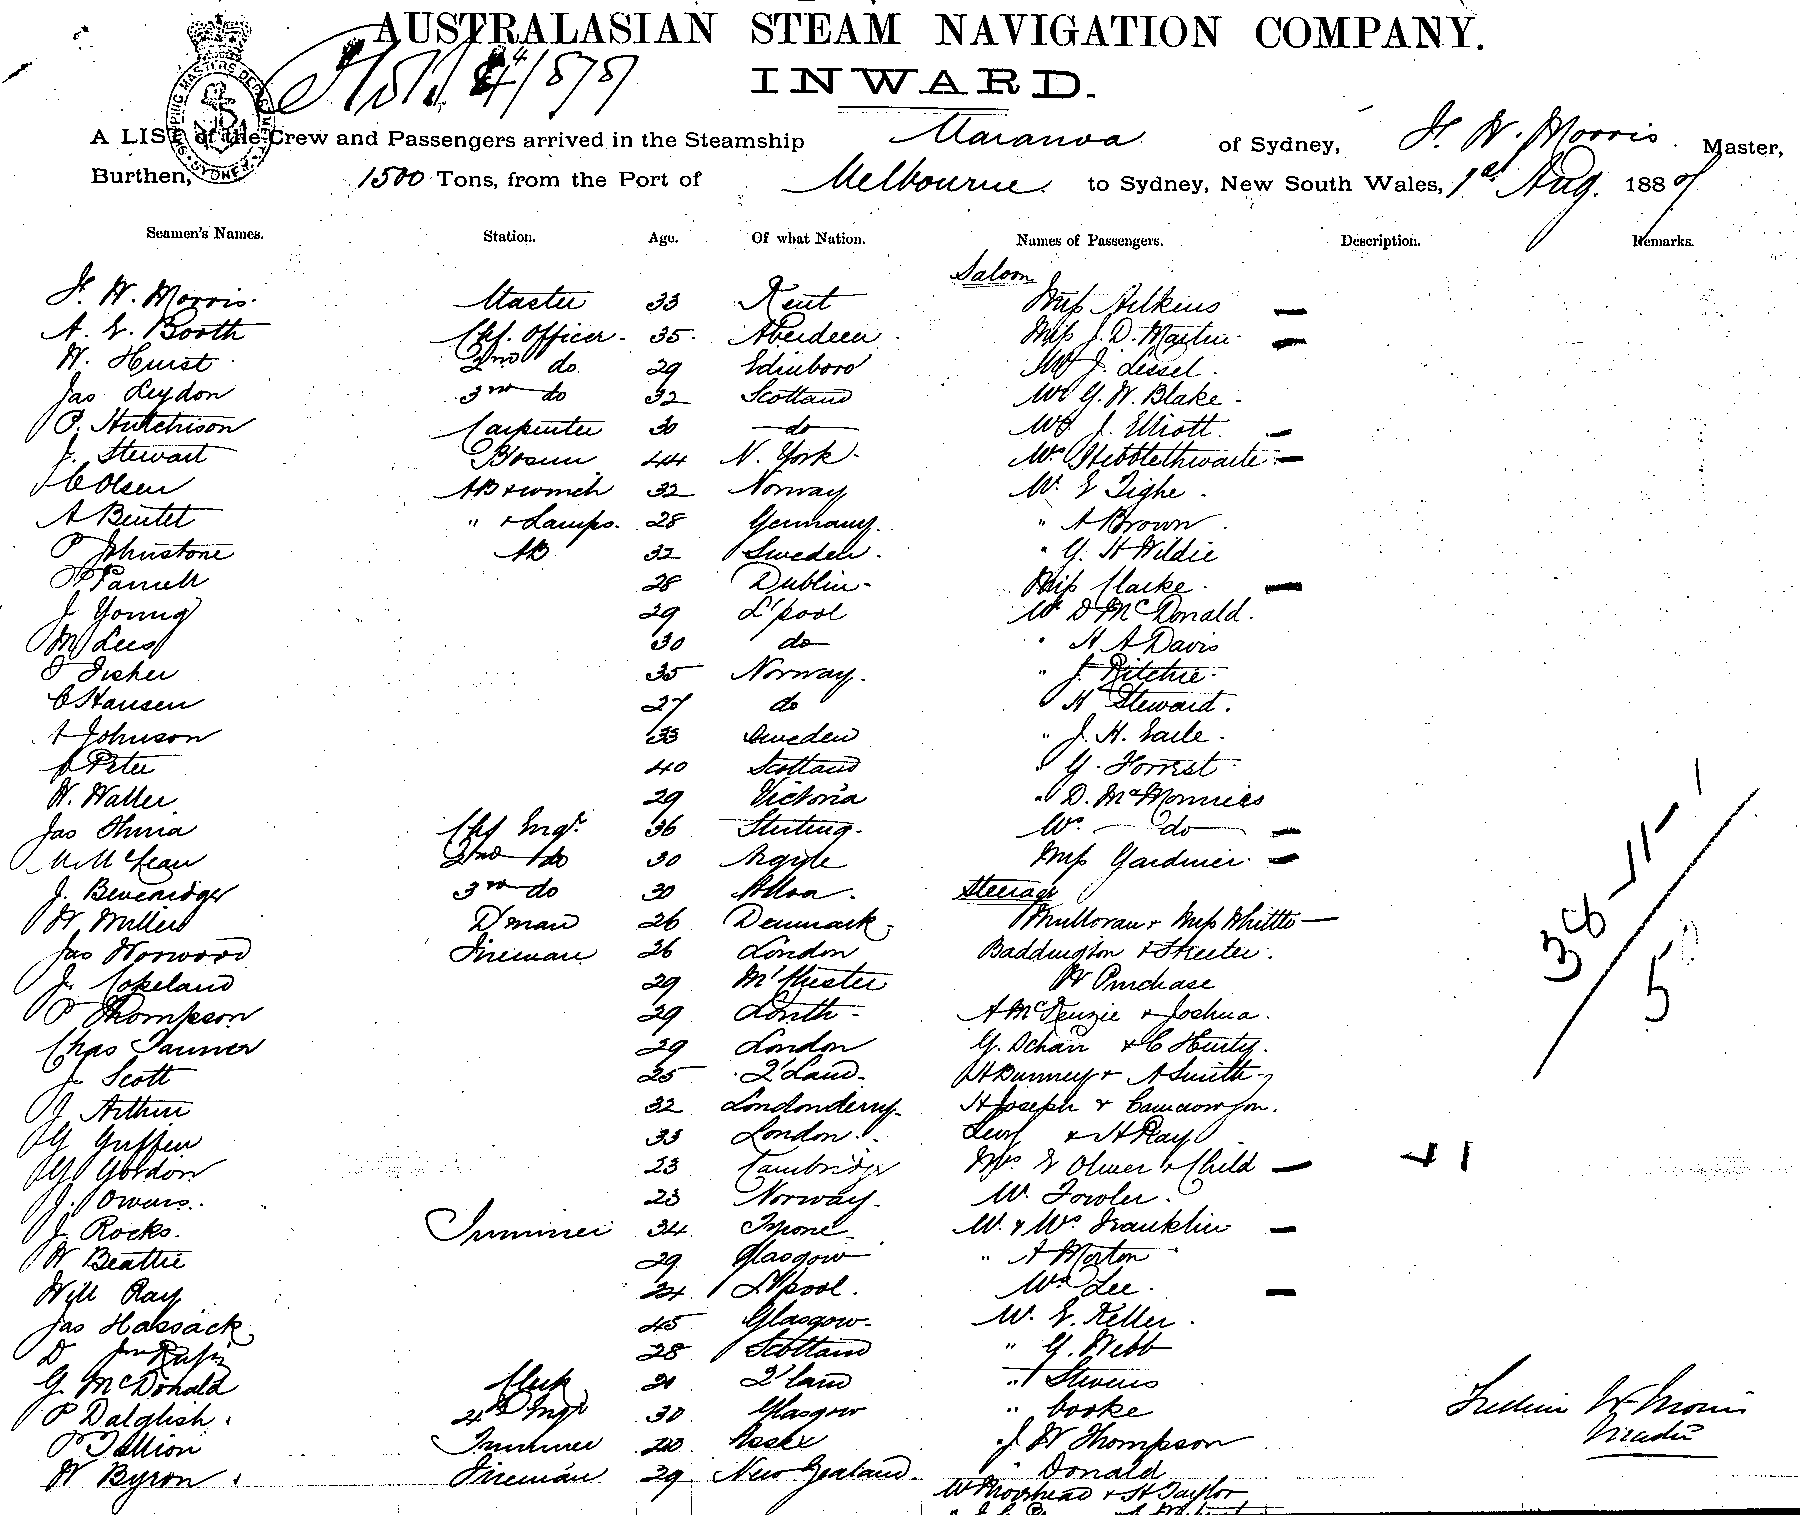 AUSTRALASIAN STEAM NAVIGATION COMPANY.
INWARD.
A LIST of the Crew and Passengers arrived in the Steamship Maranoa of Sydney, F. W. Morris Master,
Burthen, 1500 Tons, from the Port of Melbourne to Sydney, New South Wales, 1st Aug. 188
Seamen's Names. Station. Age. Of what Nation. Names of Passengers. Description. Remarks.
Saloon
F. W. Morris Master 33 Kent Miss Aitkins
A. E. Booth Chf. Officer 35 Aberdeen Miss J. D. Martin
W. Hurst 2nd do 29 Edinboro' Mr J. Lissel
Jas Leydon 3rd do 32 Scotland Mr G. W. Blake
P. Hutchison Carpenter 30 do Mr J. Elliott
J. Stewart Bosun 44 N. York Mrs Hebblethwaite
C Olsen AB & winch 32 Norway Mr. E Tighe
A Beutel " & Lamps. 28 Germany " A Brown
P Johnstone AB 32 Sweden " G. H Wildie
P Parnell 28 Dublin Miss Clarke
J Young 29 L'pool Mr D McDonald
M Lees 30 do " H A Davis
Fisher 35 Norway " J. Ritchie
C Hansen 27 do " H Steward
A Johnson 33 Sweden " J. H. Earle
Peter 40 Scotland " G. Forrest
W. Waller 29 Victoria " D. McMonnies
Jas Chf Engr. 36 Stirling Mrs do
McLean 2nd do 30 Argyle Miss Gardiner
J. Beveridge 3rd do 30 Alloa Steerage
W Miller D'man 26 Denmark Mulloran & Miss Whittle
Jas Norwood Fireman 26 London Baddington & Skeeter
J. Copeland 29 M'chester W Purchase
P Thompson 29 Louth A McKenzie & Joshua
Chas Tanner 29 London G. & C Hurty
J. Scott 25 Q'Land H Bunney & A Smith
J Arthur 32 Londonderry H Joseph & Cameron jon.
G Griffen 33 London Levy & H Ray
G Gordon 23 Cambridge Mrs E Oliver & Child + 1
J. Owens 23 Norway Mr Fowler
J. Rocks Trimmer 34 Tyrone Mr & Mrs Franklin
W Beattie 29 Glasgow " A Morton
Will Ray 24 L'pool Mrs Lee
Jas Hassack 45 Glasgow Mr. E. Keller
D 28 Scotland " G. Webb
G McDonald Clerk 21 Q'land " Stevens
P Dalglish 4th Engr 30 Glasgow " Cooke
P Tallion Trimmer 20 Essex " J W Thompson
W Byron Fireman 29 New Zealand " Donald
Mr Moorhead & H Taylor
38
11
5